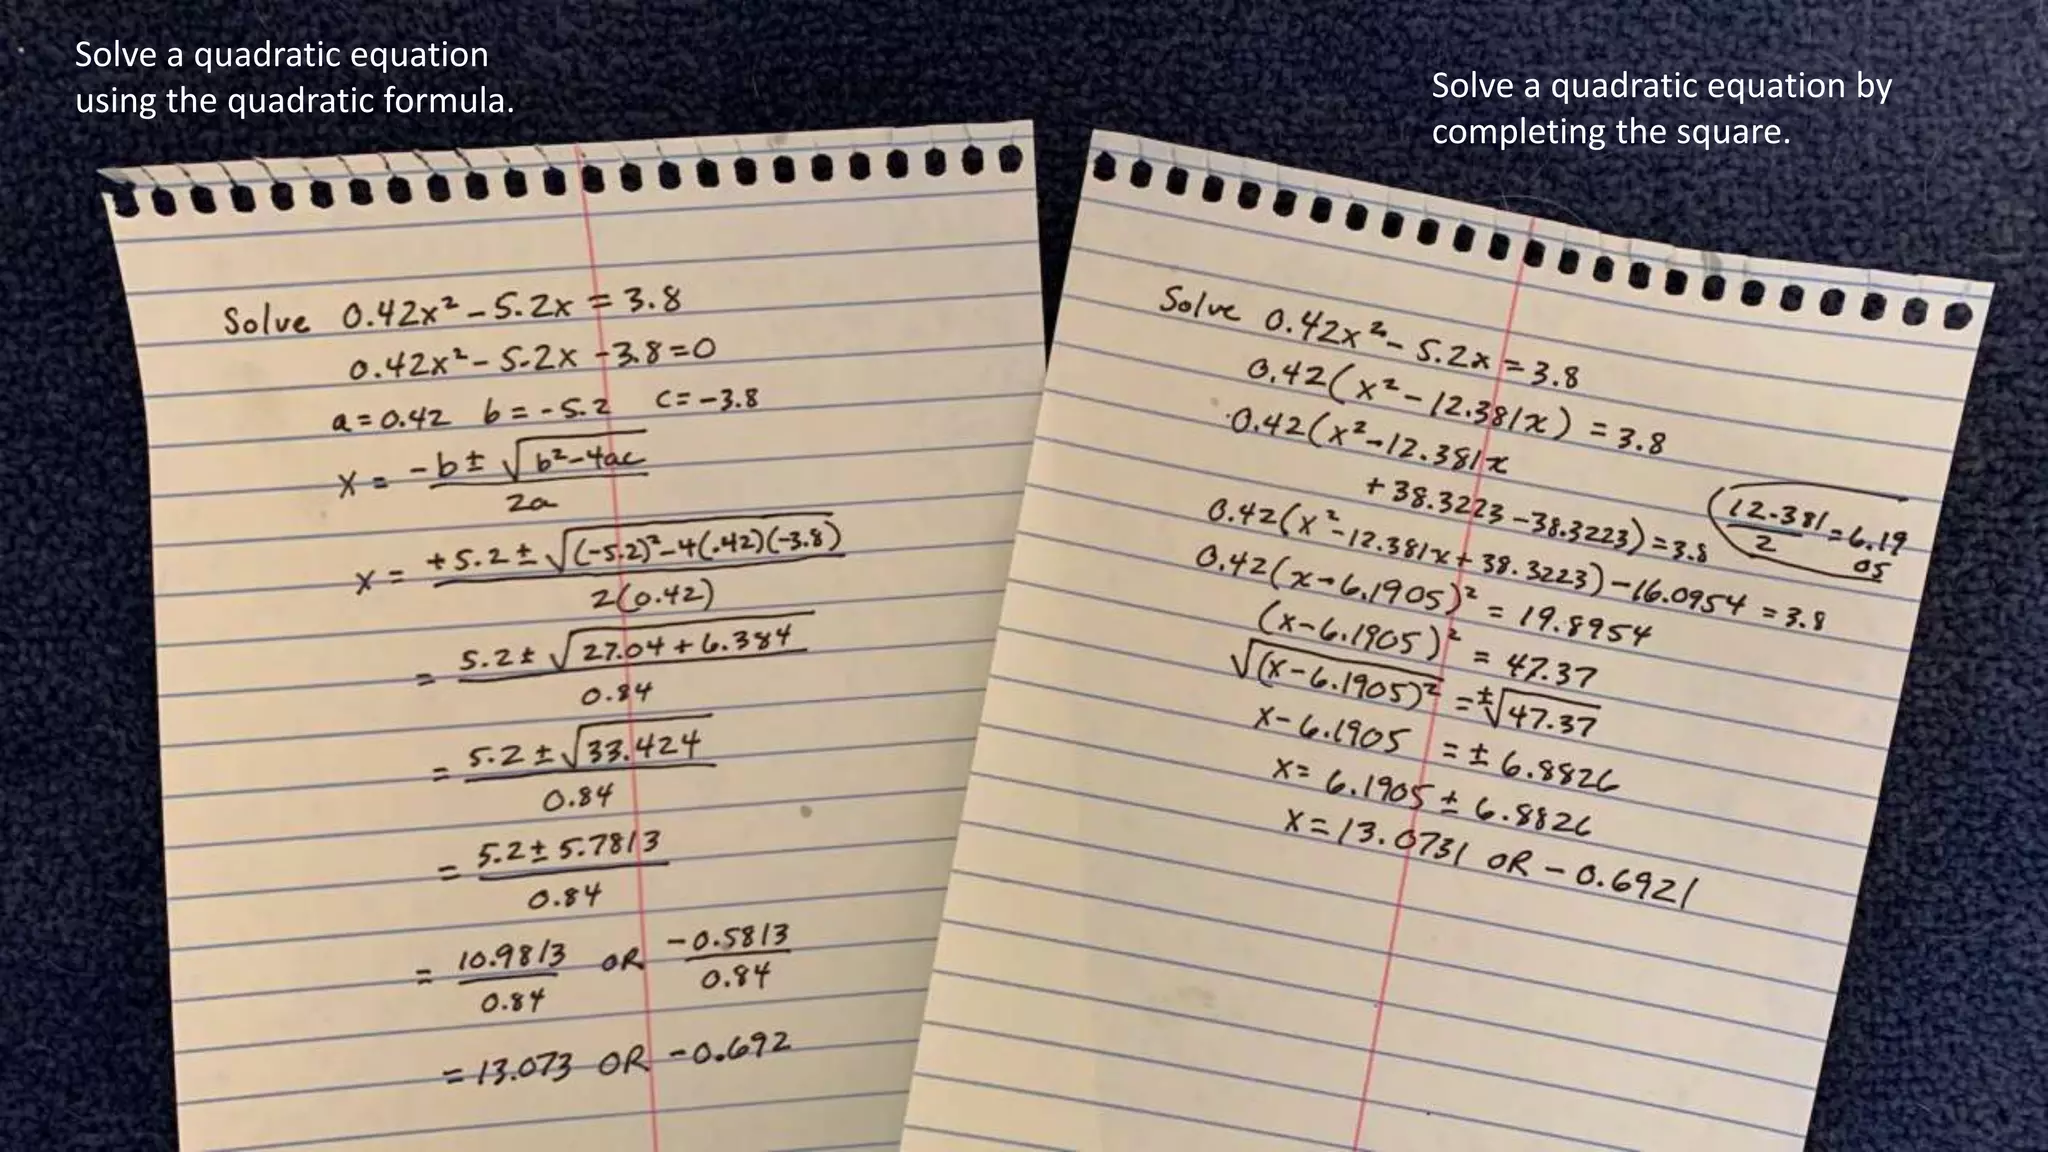 Solve a quadratic equation
using the quadratic formula.
Solve 0.42x² - 5.2x = 3.8
0.42x² - 5.2x - 3.8 = 0
a = 0.42 b = -5.2 c = -3.8
x = -b ± √b²-4ac
2a
x = +5.2 ± √(-5.2)²-4(.42)(-3.8)
2(0.42)
= 5.2 ± √27.04 + 6.384
0.84
= 5.2 ± √33.424
0.84
= 5.2 ± 5.7813
0.84
= 10.9813 OR -0.5813
0.84 0.84
= 13.073 OR -0.692
Solve a quadratic equation by
completing the square.
Solve 0.42x² - 5.2x = 3.8
0.42(x² - 12.381x) = 3.8
0.42(x² - 12.381x
+ 38.3223 - 38.3223) = 3.8
12.381 = 6.19
2 05
0.42(x² - 12.381x + 38.3223) - 16.0954 = 3.8
0.42(x - 6.1905)² = 19.8954
(x - 6.1905)² = 47.37
√(x - 6.1905)² = ±√47.37
x - 6.1905 = ± 6.8826
x = 6.1905 ± 6.8826
x = 13.0731 OR -0.6921